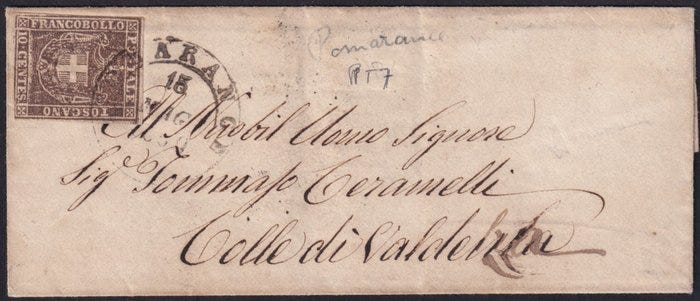 FRANCOBOLLO
POSTALE
TOSCANO
10 CENTES.
MARANCE
15
MAG
Pomarance
PT7
Al Nobil Uomo Signore
Sigr Tommaso Ceramelli
Colle di Valdelsa